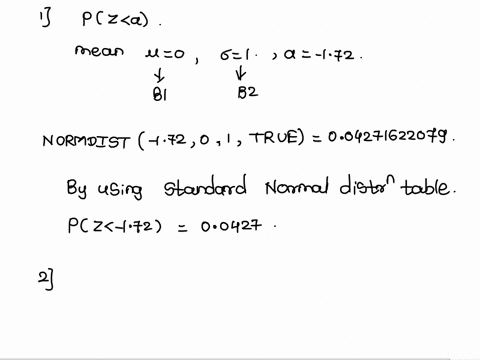 1] P(Z<a).
mean μ=0, σ=1. , a=-1.72.
↓ ↓
B1 B2
NORMDIST (-1.72, 0, 1, TRUE) = 0.04271622079.
By using Standard Normal distrⁿ table.
P(Z<-1.72) = 0.0427.
2]